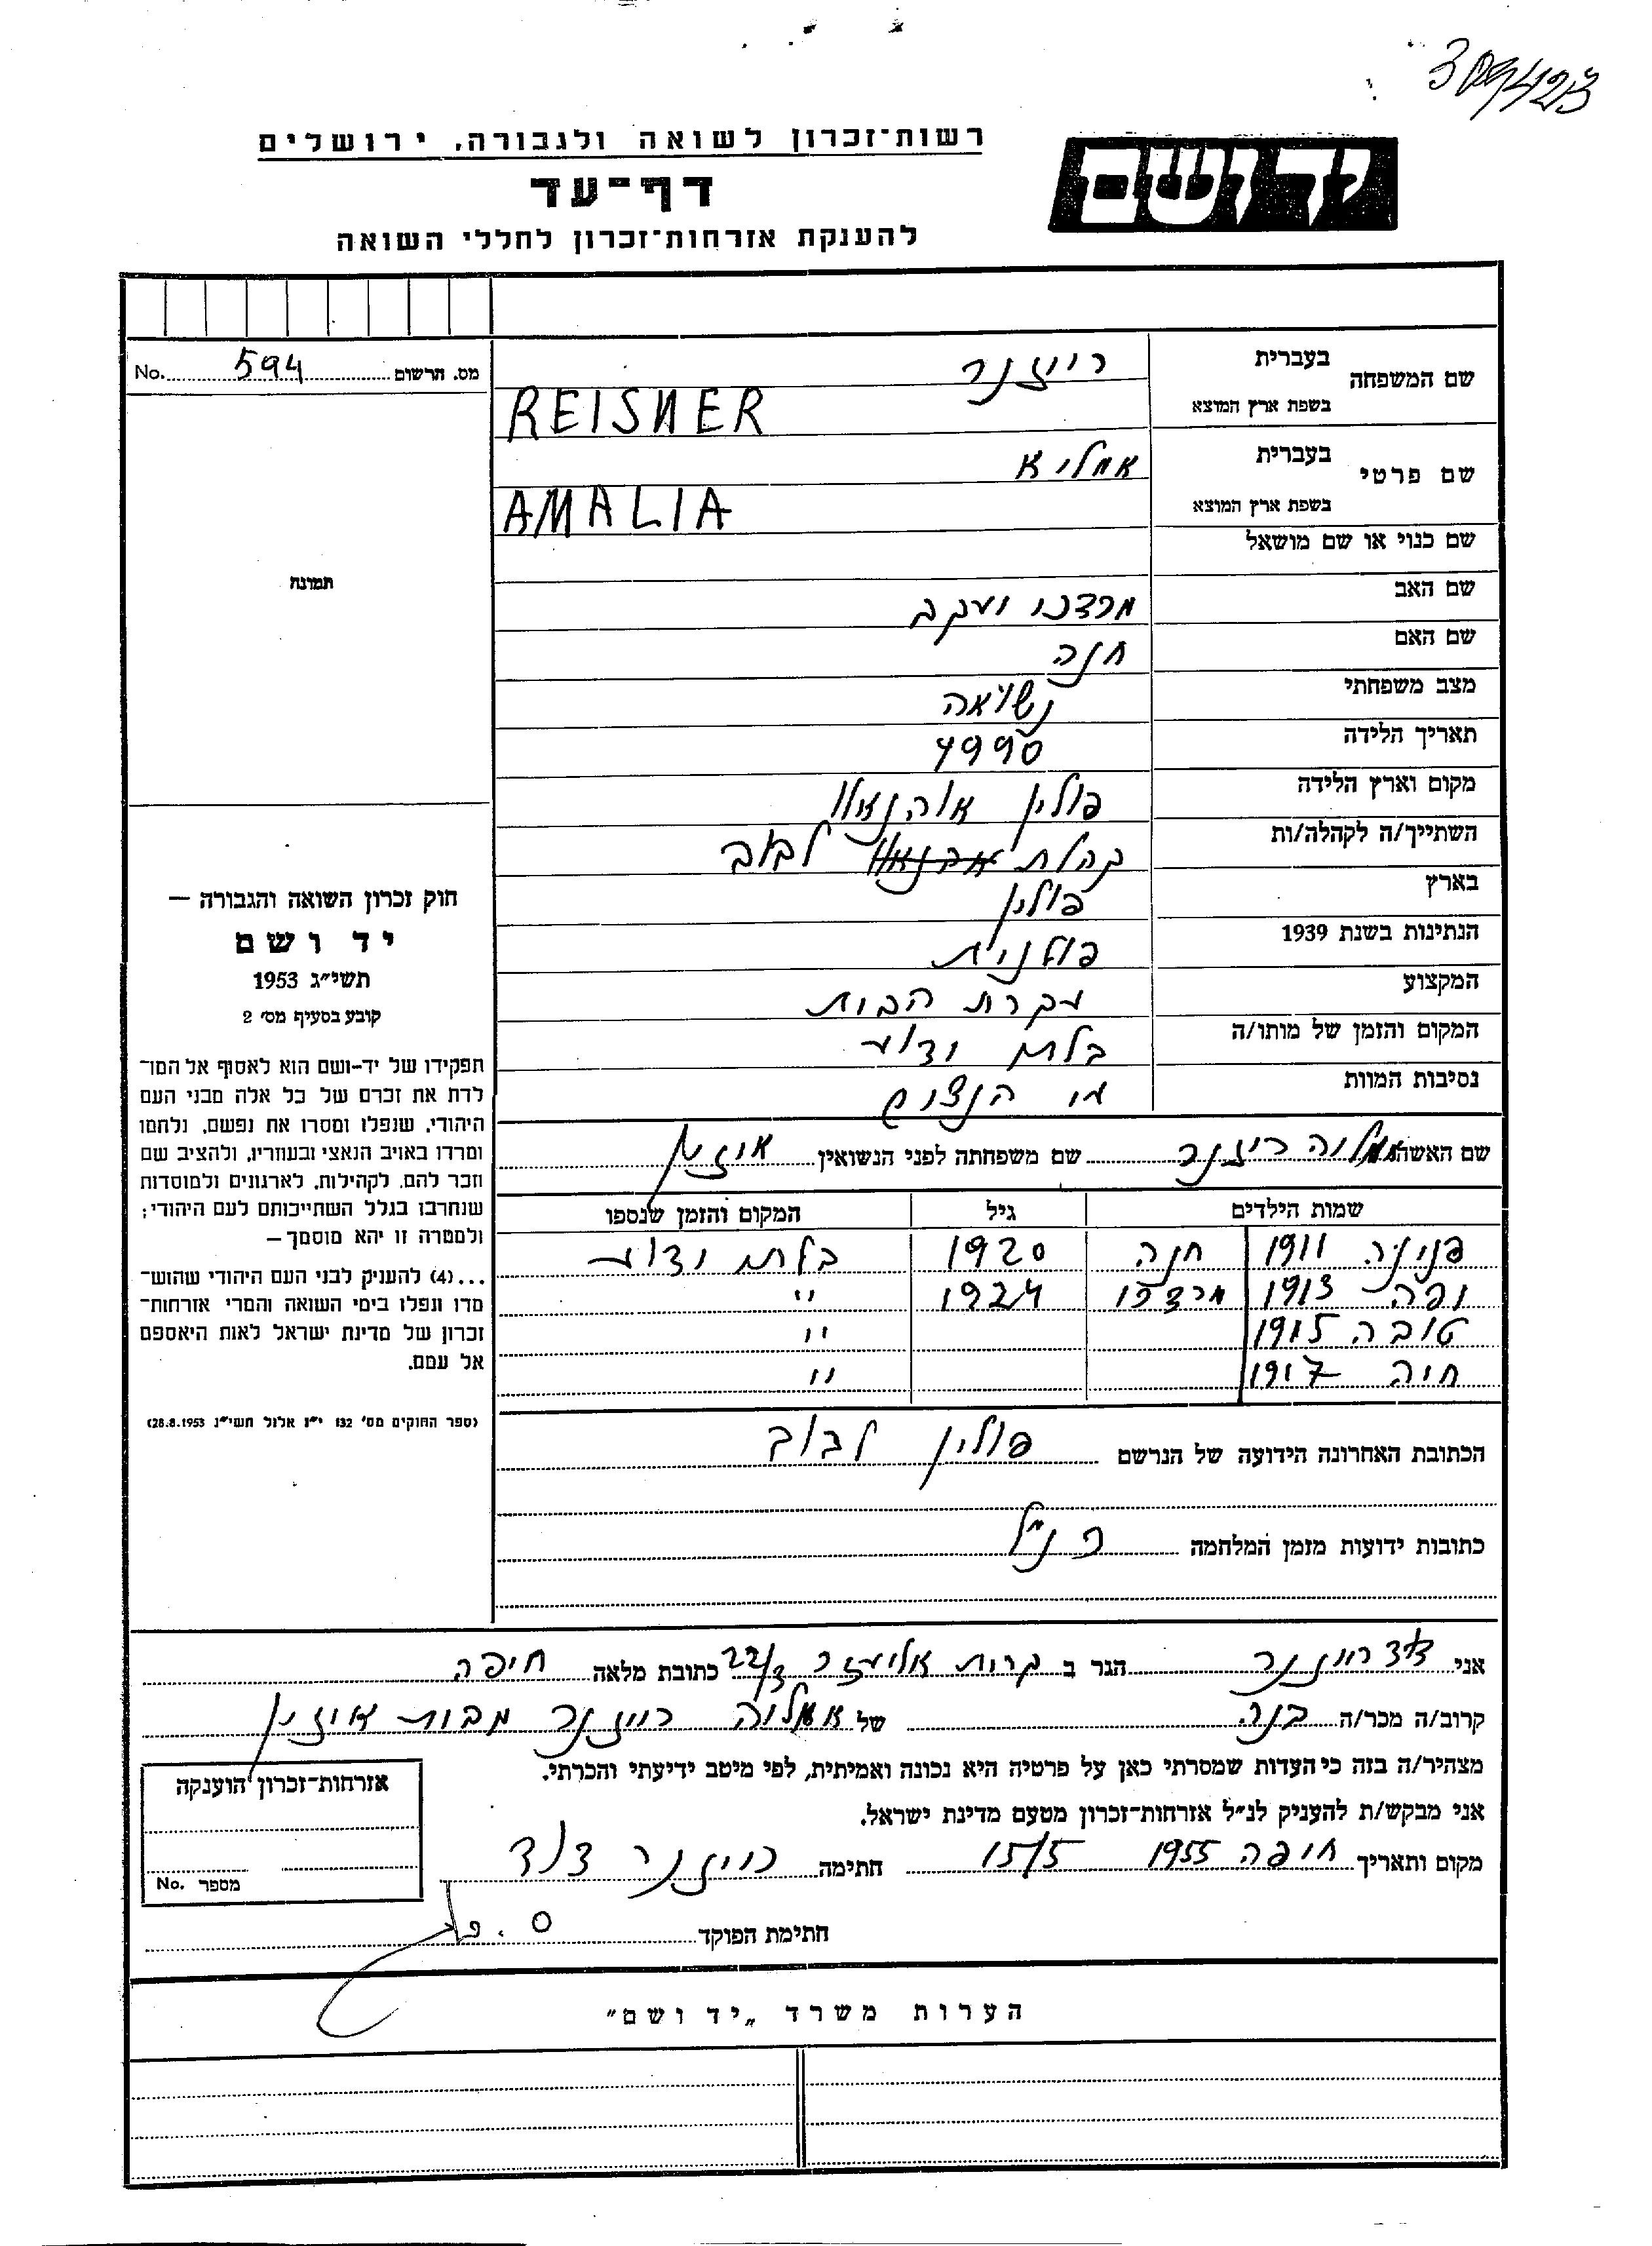 רשות־זכרון לשואה ולגבורה, ירושלים
יד ושם
דף־עד
להענקת אזרחות־זכרון לחללי השואה
מס. הרשום 594 No.
שם המשפחה בעברית רייזנר
בשפת ארץ המוצא REISNER
שם פרטי בעברית אמליא
בשפת ארץ המוצא AMALIA
שם כנוי או שם מושאל
שם האב מרדכי יעקב
שם האם חנה
מצב משפחתי נשואה
תאריך הלידה
מקום וארץ הלידה פולין
השתייך/ה לקהלה/ות קהלת לבוב
בארץ פולין
הנתינות בשנת 1939 פולנית
המקצוע עקרת הבית
המקום והזמן של מותו/ה בלתי ידוע
נסיבות המוות ע״י הנצים
שם האשה אמליה רייזנר שם משפחתה לפני הנשואין
שמות הילדים גיל המקום והזמן שנספו
פנינה 1911 חנה 1920 בלתי ידוע
יפה 1913 מרדכי 1924 ״
טובה 1915 ״
חיה 1917 ״
הכתובת האחרונה הידועה של הנרשם פולין לבוב
כתובות ידועות מזמן המלחמה הנ״ל
אני דוד רייזנר הגר ב קרית אליעזר 22/3 כתובת מלאה חיפה
קרוב/ה מכר/ה בנה של אמליה רייזנר מבית
מצהיר/ה בזה כי העדות שמסרתי כאן על פרטיה היא נכונה ואמיתית, לפי מיטב ידיעתי והכרתי.
אני מבקש/ת להעניק לנ״ל אזרחות־זכרון מטעם מדינת ישראל.
מקום ותאריך חיפה 1955 15/5 חתימה רייזנר דוד
חתימת הפוקד
תמונה
חוק זכרון השואה והגבורה —
יד ושם
תשי״ג 1953
קובע בסעיף מס׳ 2
תפקידו של יד-ושם הוא לאסוף אל המו־
לדת את זכרם של כל אלה מבני העם
היהודי, שנפלו ומסרו את נפשם, נלחמו
ומרדו באויב הנאצי ובעוזריו, ולהציב שם
וזכר להם, לקהילות, לארגונים ולמוסדות
שנחרבו בגלל השתייכותם לעם היהודי;
ולמטרה זו יהא מוסמך—
...(4) להעניק לבני העם היהודי שהוש־
מדו ונפלו בימי השואה והמרי אזרחות־
זכרון של מדינת ישראל לאות היאספם
אל עמם.
(ספר החוקים מס׳ 132 י״ז אלול תשי״ג 28.8.1953)
אזרחות־זכרון הוענקה
מספר No.
הערות משרד „יד ושם”